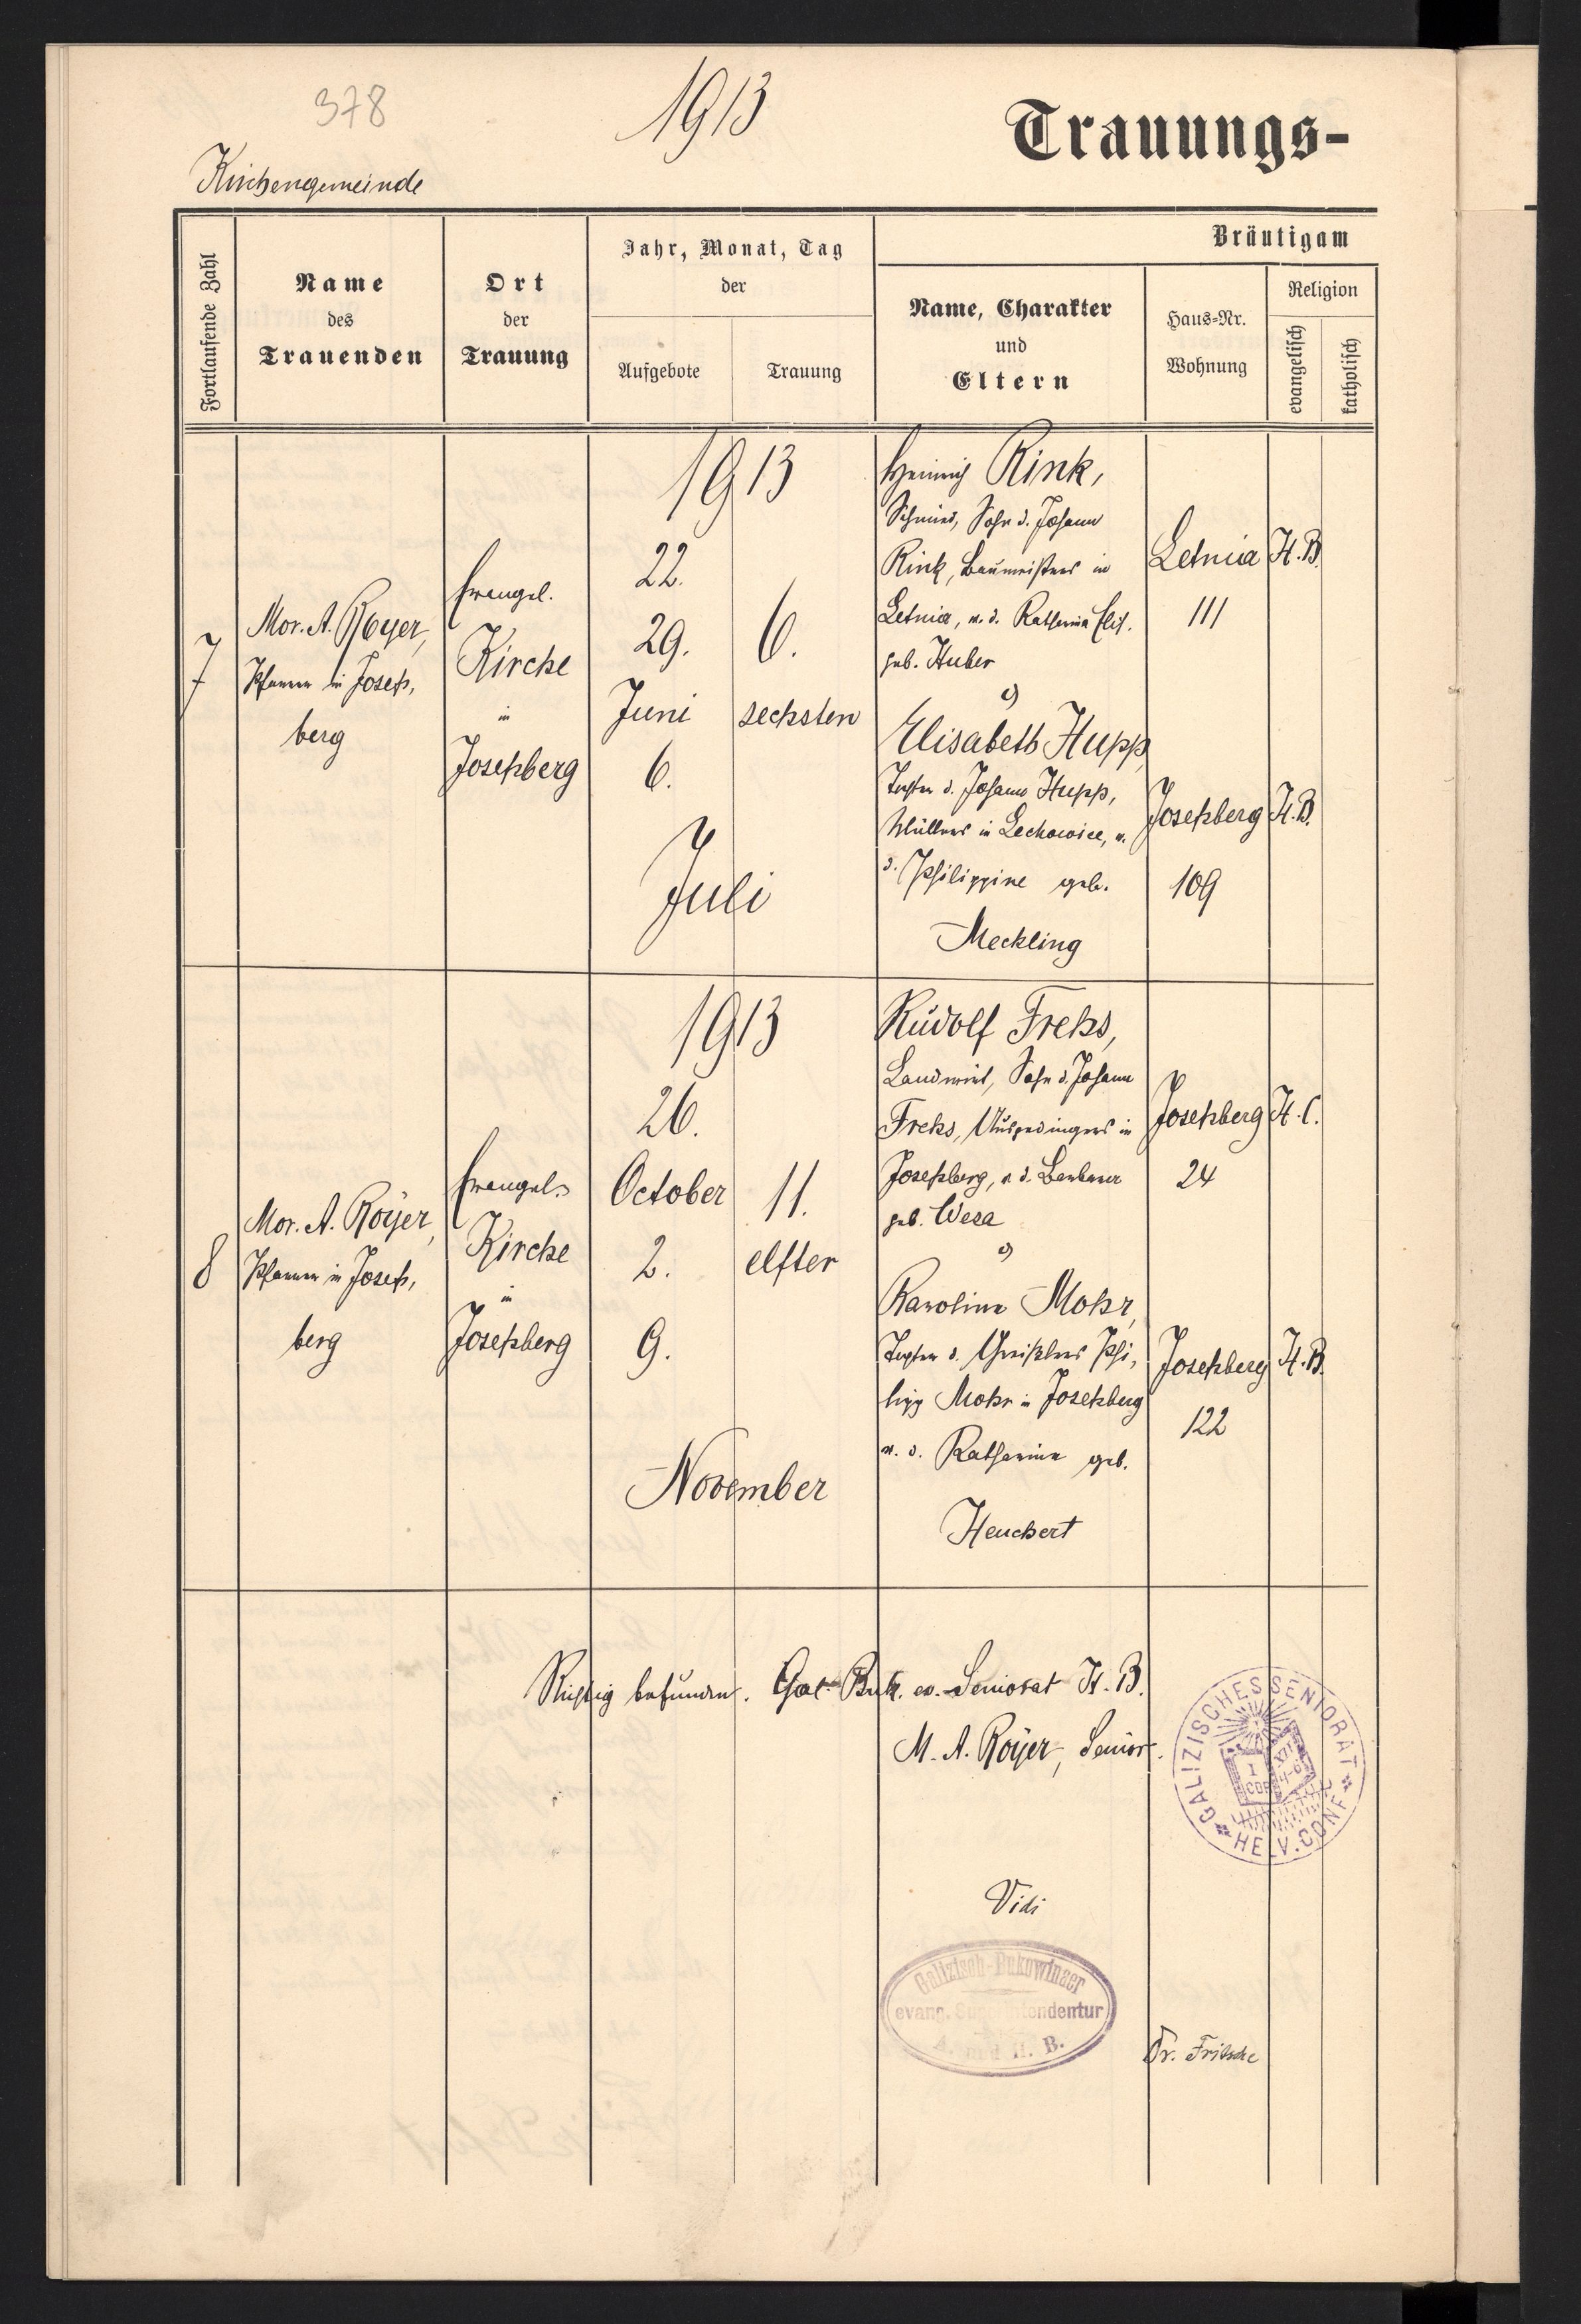 378
1913
Trauungs-
Kirchengemeinde
Fortlaufende Zahl
Name
des
Trauenden
Ort
der
Trauung
Jahr, Monat, Tag
der
Aufgebote
Trauung
Bräutigam
Name, Charakter
und
Eltern
Haus-Nr.
Wohnung
Religion
evangelisch
katholisch
7
Mor. A. Royer,
Pfarrer in Josefs,
berg
Evangel.
Kirche
in
Josefsberg
1913
22.
29.
Juni
6.
Juli
6.
sechsten
Heinrich Rink,
Schmied, Sohn d. Johann
Rink, Baumeisters in
Letnia, u. d. Katharina Elis.
geb. Huber
Letnia
111
H. B.
Elisabeth Hupp,
Tochter d. Johann Hupp,
Müllers in Lechowice, u.
d. Philippine geb.
Meckling
Josefsberg
109
H. B.
8
Mor. A. Royer,
Pfarrer in Josefs,
berg
Evangel.
Kirche
in
Josefsberg
1913
26.
October
2.
9.
November
11.
elfter
Rudolf Frehs,
Landwirt, Sohn d. Johann
Frehs, Ausgedingers in
Josefsberg, u. d. Barbara
geb. Wesa
Josefsberg
24
H. C.
Karolina Mohr,
Tochter d. Greißlers Phi,
lipp Mohr in Josefsberg
u. d. Katharina geb.
Heuchert
Josefsberg
122
H. B.
Richtig befunden. Gal. Buk. ev. Seniorat H. B.
M. A. Royer, Senior.
GALIZISCHES SENIORAT
HELV. CONF.
Vidi
Galizisch-Bukowinaer
evang. Superintendentur
A. und H. B.
Fr. Fritsche